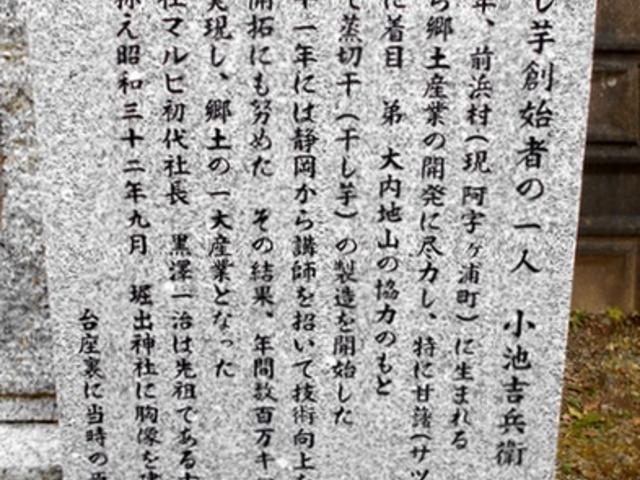 し芋創始者の一人 小池吉兵衛
年、前浜村(現 阿字ヶ浦町)に生まれる
ら郷土産業の開発に尽力し、特に甘藷(サツ
に着目 弟 大内地山の協力のもと
て蒸切干(干し芋)の製造を開始した
十一年には静岡から講師を招いて技術向上を
開拓にも努めた その結果、年間数百万キ
実現し、郷土の一大産業となった
社マルヒ初代社長 黒澤一治は先祖である古
称え昭和三十二年九月 堀出神社に胸像を建
台座裏に当時の